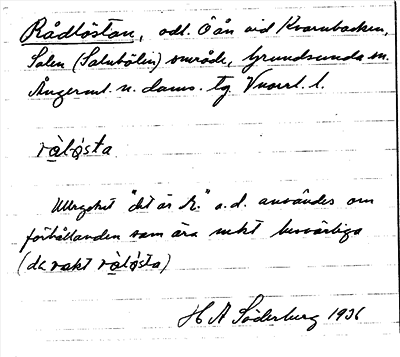 Rådlöstan, odl. Ö ån vid Kvarnbacken,
Salen (Salubölin) område, Grundsunda sn.
Ångerml. n. doms. tg Vnorrl. l.
ròlǫ̀sta
Uttrycket "det är R." a.d. användes om
förhållanden som äro mkt besvärliga
(de vakt ròlǫ̀sta)
H A Söderburg 1936